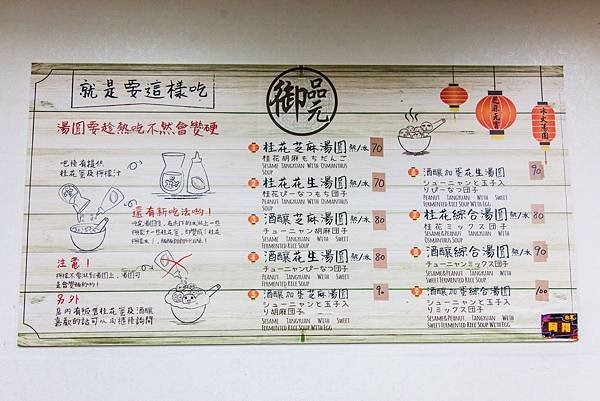 就是要這樣吃
湯圓要趁熱吃不然會變硬
吧檯有提供
桂花蜜及檸檬汁
還有新吃法喲!
注意!
檸檬不要淋到湯圓上,湯圓可
另外
店內有販售桂花蜜及酒釀
喜歡的話可以向櫃檯詢問
御品元
桂花芝麻湯圓 熱/冰 70
桂花胡麻もちだんご
Sesame Tangyuan With Osmanthus
Soup
桂花花生湯圓 熱/冰 70
桂花ぴーなつもち団子
Peanut Tangyuan With Osmanthus
Soup
酒釀芝麻湯圓 熱/冰 80
チューニャン胡麻団子
Sesame Tangyuan With Sweet
Fermented Rice Soup
酒釀花生湯圓 熱/冰 80
チューニャンぴーなつ団子
Peanut Tangyuan With Sweet
Fermented Rice Soup
酒釀加蛋芝麻湯圓 90
シューニャンと玉子入
り胡麻団子
Sesame Tangyuan With Sweet
Fermented Rice Soup With Egg
冰火湯圓
酒釀加蛋花生湯圓 90
シューニャンと玉子入
りぴーなつ団子
Peanut Tangyuan With Sweet
Fermented Rice Soup With Egg
桂花綜合湯圓 熱/冰 80
桂花ミックス団子
Sesame&Peanut Tangyuan With
Osmanthus Soup
酒釀綜合湯圓 熱/冰 90
チューニャンミックス団子
Sesame&Peanut Tangyuan With
Sweet Fermented Rice Soup
酒釀加蛋綜合湯圓 100
シューニャンと玉子入
りミックス団子
Sesame&Peanut Tangyuan With
Sweet Fermented Rice Soup With Egg
阿翔